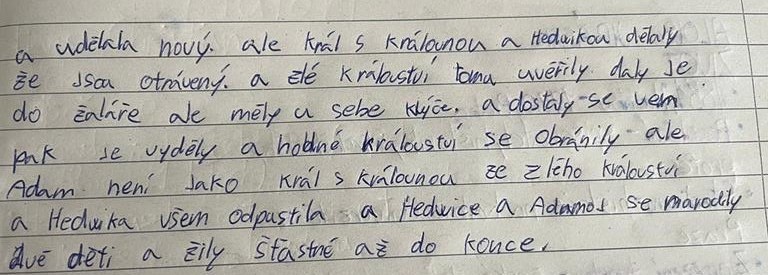 a udělala nový. ale král s královnou a Hedvikou dělaly
že jsou otrávený. a zlé království tomu uvěřily daly je
do žaláře ale měly u sebe klýče. a dostaly-se vem
pak se vyděly a hodné království se obránily ale
Adam není jako král s královnou ze zlého království
a Hedvika všem odpustila a Hedvice a Adamovi se narodily
dvě děti a žily šťastně až do konce.